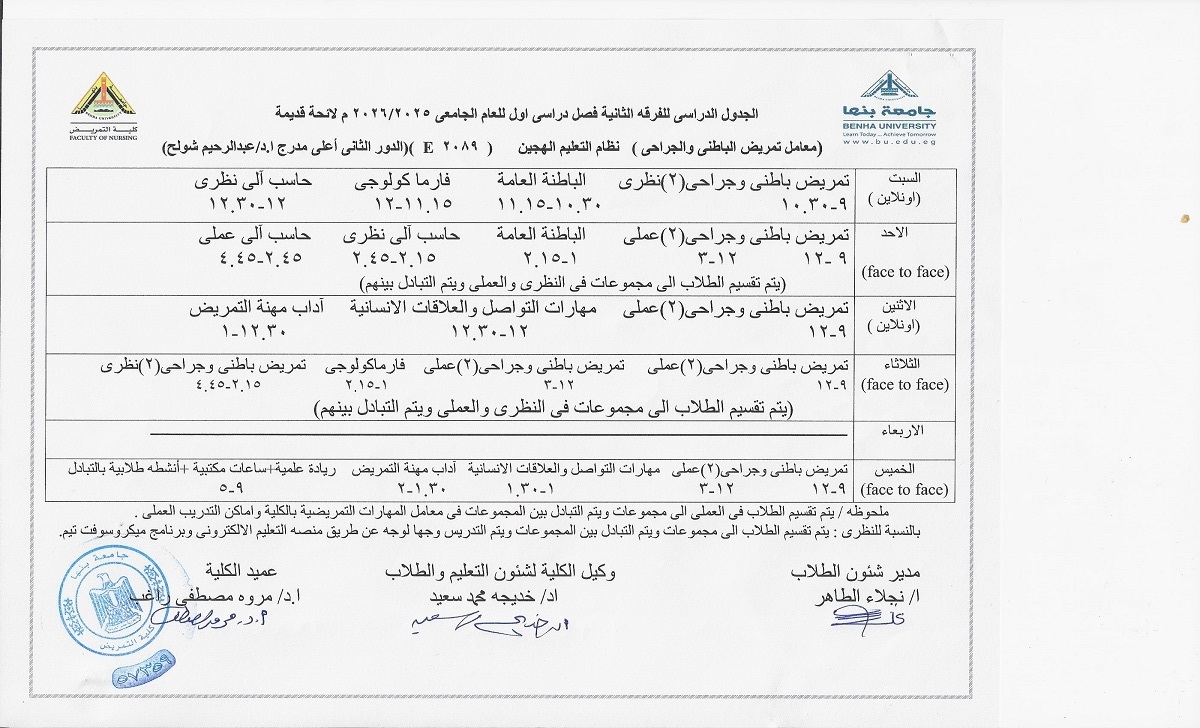 جامعة بنها
BENHA UNIVERSITY
Learn Today ... Achieve Tomorrow
www.bu.edu.eg
كلية التمريض
FACULTY OF NURSING
الجدول الدراسى للفرقه الثانية فصل دراسى اول للعام الجامعى ٢٠٢٦/٢٠٢٥ م لائحة قديمة
(معامل تمريض الباطنى والجراحى ) نظام التعليم الهجين ( E ٢٠٨٩ )(الدور الثانى أعلى مدرج ا.د/عبدالرحيم شولح)
السبت تمريض باطنى وجراحى(٢)نظرى الباطنة العامة فارما كولوجى حاسب آلى نظرى
(اونلاين ) ٩-١٠.٣٠ ١٠.٣٠-١١.١٥ ١١.١٥-١٢ ١٢-١٢.٣٠
الاحد تمريض باطنى وجراحى(٢)عملى الباطنة العامة حاسب آلى نظرى حاسب آلى عملى
(face to face) ٩ -١٢ ١٢-٣ ١-٢.١٥ ٢.١٥-٢.٤٥ ٢.٤٥-٤.٤٥
(يتم تقسيم الطلاب الى مجموعات فى النظرى والعملى ويتم التبادل بينهم)
الاثنين تمريض باطنى وجراحى(٢)عملى مهارات التواصل والعلاقات الانسانية آداب مهنة التمريض
(اونلاين ) ٩-١٢ ١٢-١٢.٣٠ ١٢.٣٠-١
الثلاثاء تمريض باطنى وجراحى(٢)عملى تمريض باطنى وجراحى(٢)عملى فارماكولوجى تمريض باطنى وجراحى(٢)نظرى
(face to face) ٩-١٢ ١٢-٣ ١-٢.١٥ ٢.١٥-٤.٤٥
(يتم تقسيم الطلاب الى مجموعات فى النظرى والعملى ويتم التبادل بينهم)
الاربعاء
الخميس تمريض باطنى وجراحى(٢)عملى مهارات التواصل والعلاقات الانسانية آداب مهنة التمريض ريادة علمية+ساعات مكتبية +أنشطه طلابية بالتبادل
(face to face) ٩-١٢ ١٢-٣ ١-١.٣٠ ١.٣٠-٢ ٩-٥
ملحوظه / يتم تقسيم الطلاب فى العملى الى مجموعات ويتم التبادل بين المجموعات فى معامل المهارات التمريضية بالكلية واماكن التدريب العملى .
بالنسبة للنظرى : يتم تقسيم الطلاب الى مجموعات ويتم التبادل بين المجموعات ويتم التدريس وجها لوجه عن طريق منصه التعليم الالكترونى وبرنامج ميكروسوفت تيم.
مدير شئون الطلاب وكيل الكلية لشئون التعليم والطلاب عميد الكلية
ا/ نجلاء الطاهر اد/ خديجه محمد سعيد ا.د/ مروه مصطفى راغب
جامعة بنها
كلية التمريض
٥٧٣٥٩